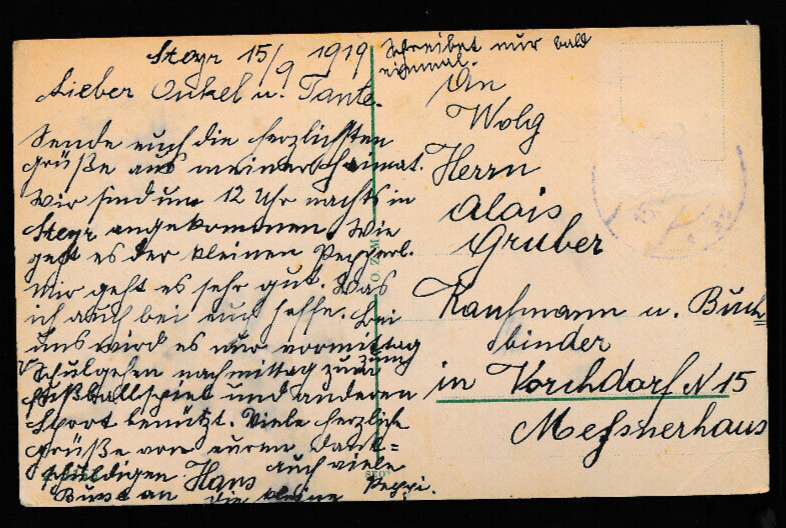 Steyr 15/9 1919
Schreibet nur bald
einmal.
Lieber Onkel u. Tante.
Sende euch die herzlichsten
Grüße aus meiner Heimat.
Wir sind um 12 Uhr nachts in
Steyr angekommen. Wie
geht es der kleinen Pepperl.
Mir geht es sehr gut. Was
ich auch bei euch hoffe. Bei
uns wird es nur vormittag
Schulgehen nachmittag zum
Fußballspiel und anderen
Sport benützt. Viele herzliche
Grüße von euren dank=
schuldigen Hans auch viele
an die kleine Peppi.
An
Wolg
Herrn
Alois
Gruber
Kaufmann u. Buch=
binder
in Vorchdorf N 15
Messnerhaus